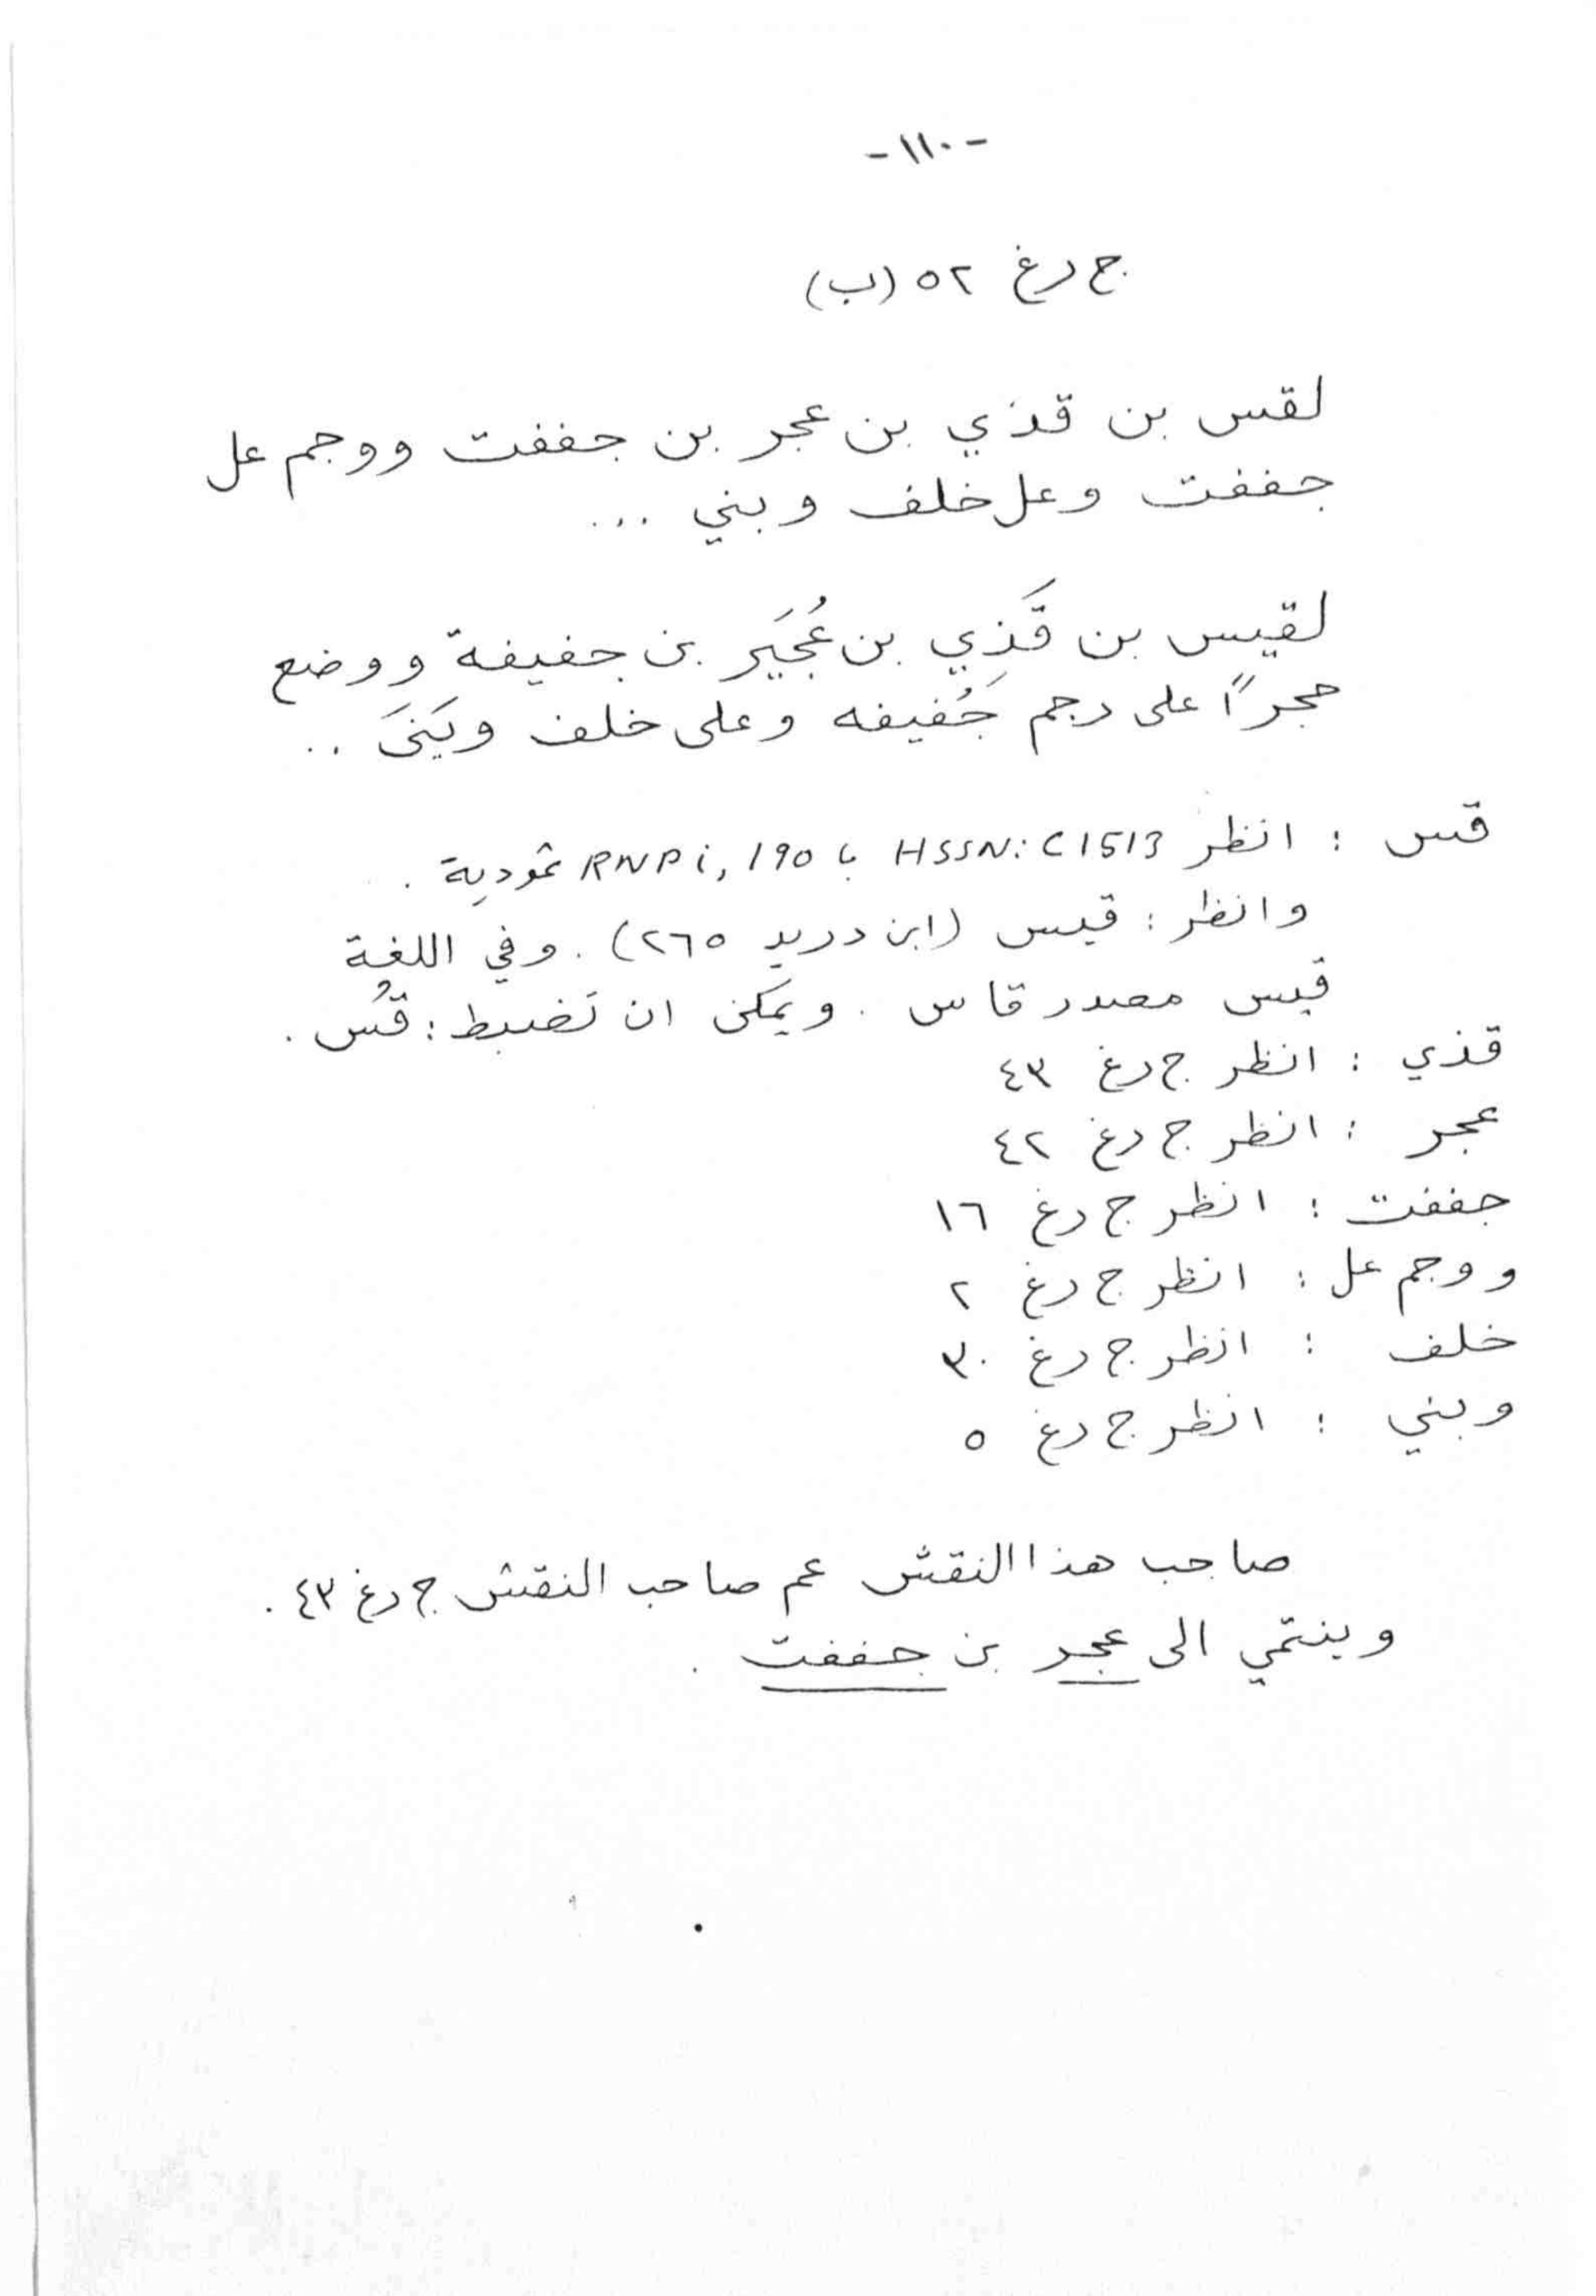 -١١٠-
ج رغ ٥٢ (ب)
لقس بن قذي بن عجر بن جففت ووجم عل
جففت وعل خلف وبني ...
لقيس بن قَذِي بن عُجَير بن جفيفة ووضع
حجراً على رجم جُفَيفه وعلى خلف وبَنيَ ..
قس : انظر HSSN: C1513 ، RNP i, 190 ثمودية .
وانظر : قيس (ابن دريد ٢٦٥) . وفي اللغة
قيس مصدر قاس . ويمكن ان تَضبط : قُس .
قذي : انظر ج رغ ٤٣
عجر : انظر ج رغ ٤٢
جففت : انظر ج رغ ١٦
ووجم عل : انظر ج رغ ٢
خلف : انظر ج رغ ٣٠
وبني : انظر ج رغ ٥
صاحب هذا النقش عم صاحب النقش ج رغ ٤٣ .
وينتمي الى عجر بن جففت .